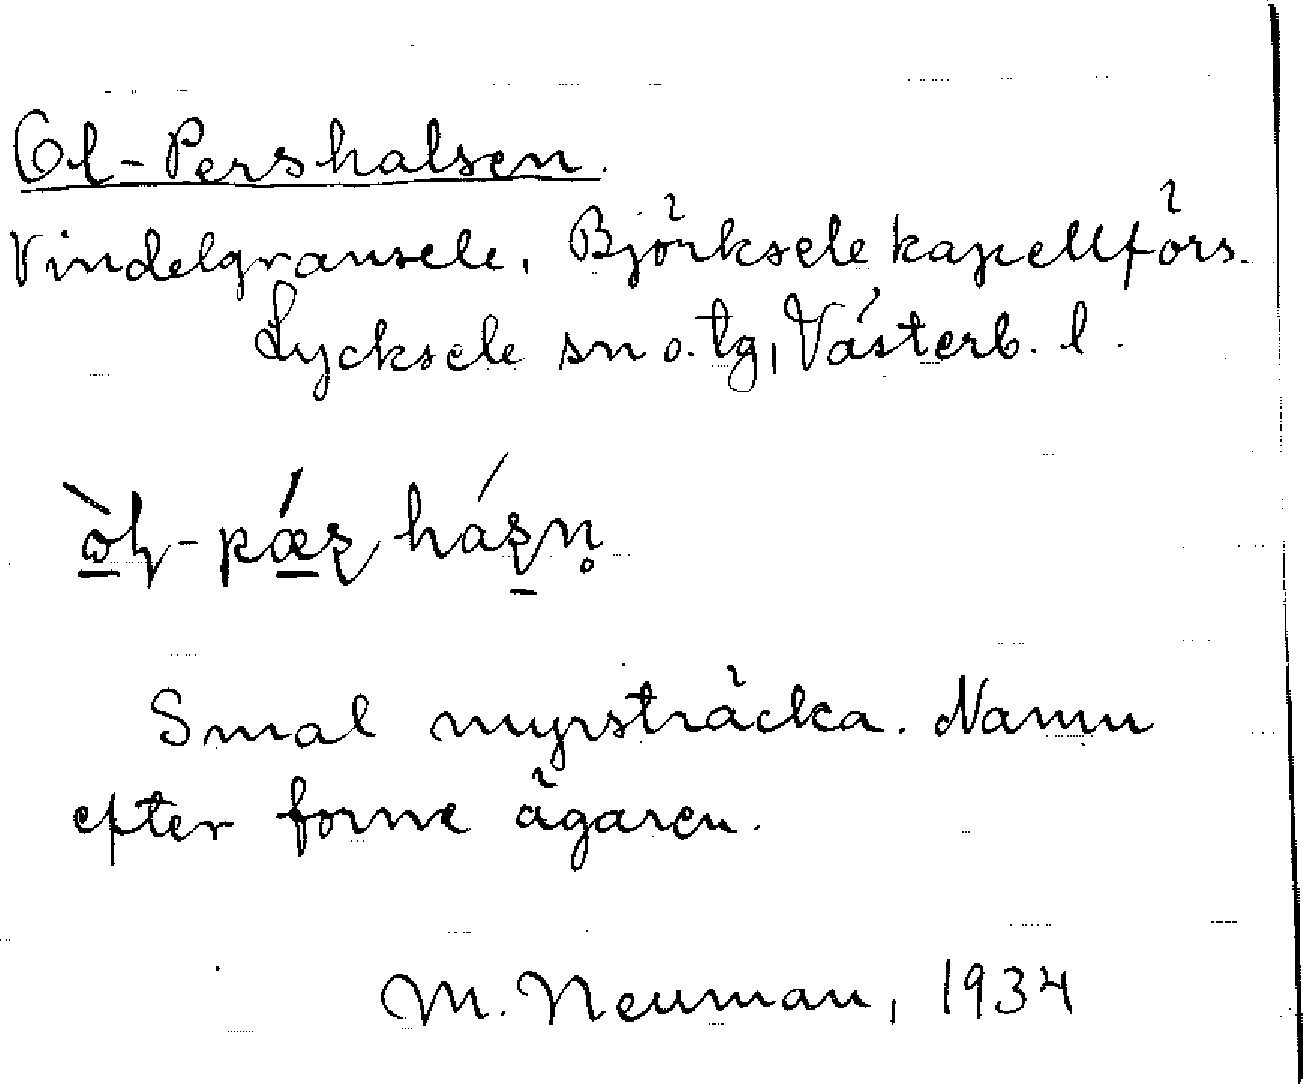 Ol-Pershalsen.
Vindelgransele, Björksele kapellförs.
Lycksele sn o. tg, Västerb. l.
Smal mysträcka. Namn
efter forne ägaren.
M. Neuman, 1934